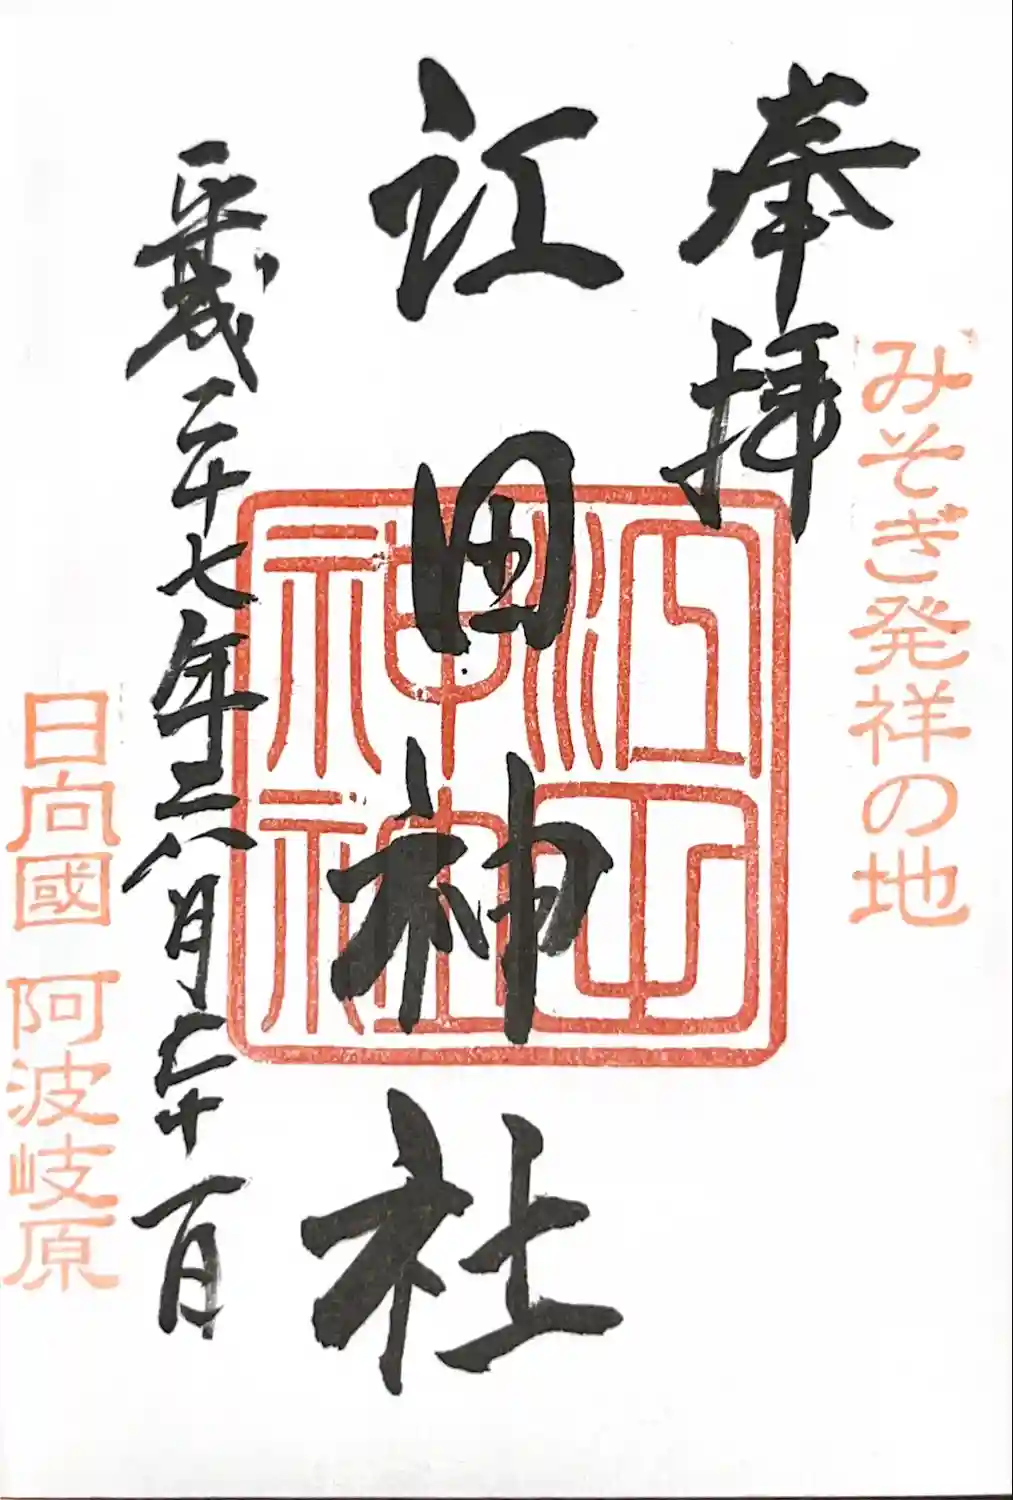 みそぎ発祥の地
奉拝
江田神社
江田
神社
平成二十七年六月二十一日
日向國 阿波岐原